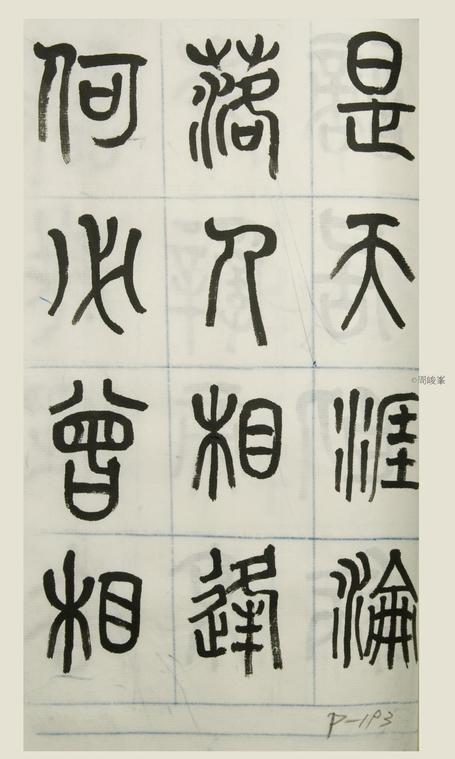 是天涯淪
落人相逢
何必曾相
P-193
©周峻峯